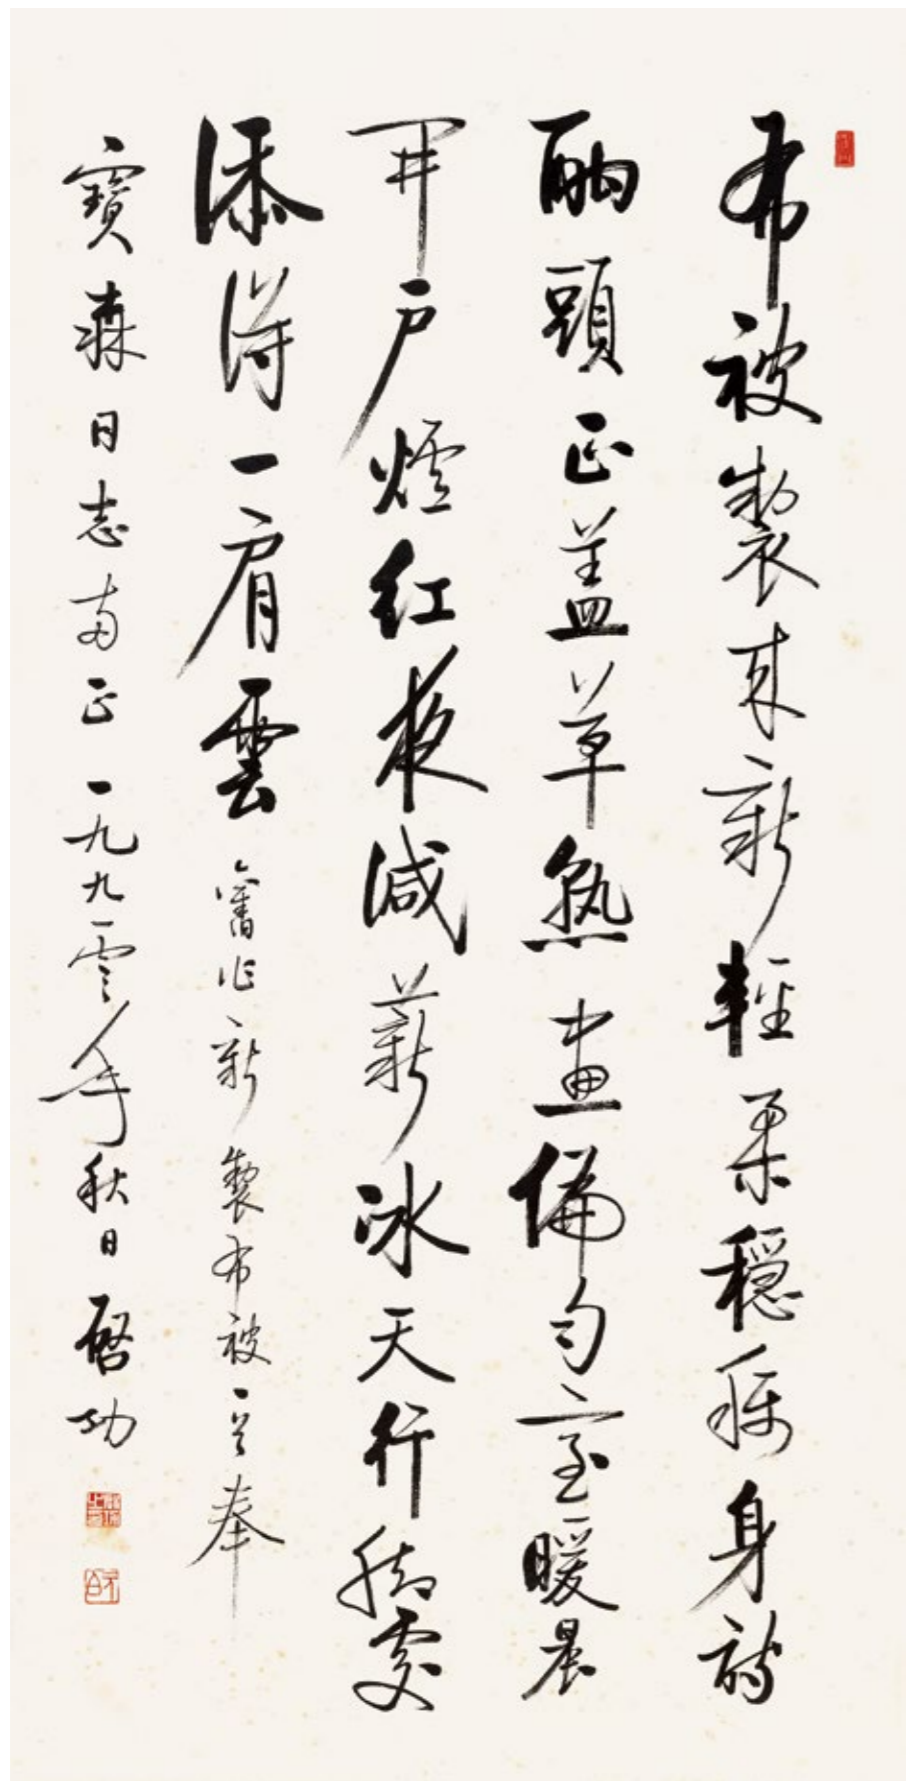 布被製来新輕柔穩稱身詩
酣頭正蓋草熟畫偏勻室暖晨
開户爐紅夜減薪冰天行脚處
添得一肩雲 舊作新製布被一首奉
寶森同志正 一九九零年秋日 啓功